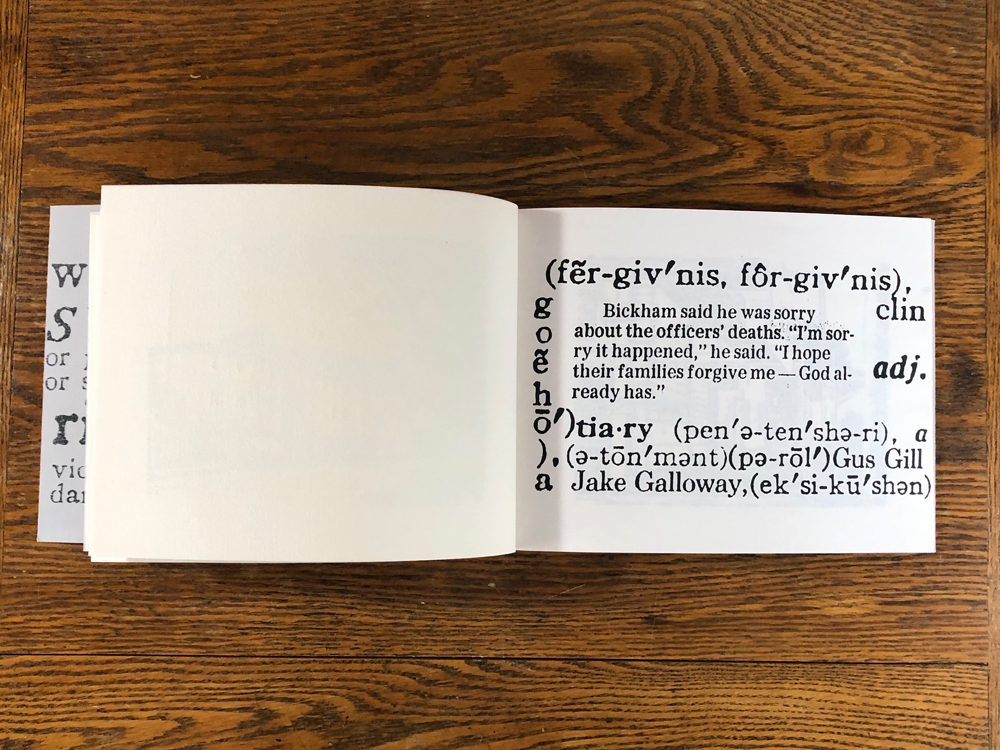 w
S
or
or s
ri
vic
dan
(fẽr-giv′nis, fôr-giv′nis),
g
o
ẽ
h
ō′)
),
a
clin
Bickham said he was sorry
about the officers' deaths. “I'm sor-
ry it happened,” he said. “I hope
their families forgive me — God al-
ready has.”
adj.
tia·ry (pen′ə-ten′shə-ri), a
(ə-tōn′mənt)(pə-rōl′)Gus Gill
Jake Galloway,(ek′si-kū′shən)